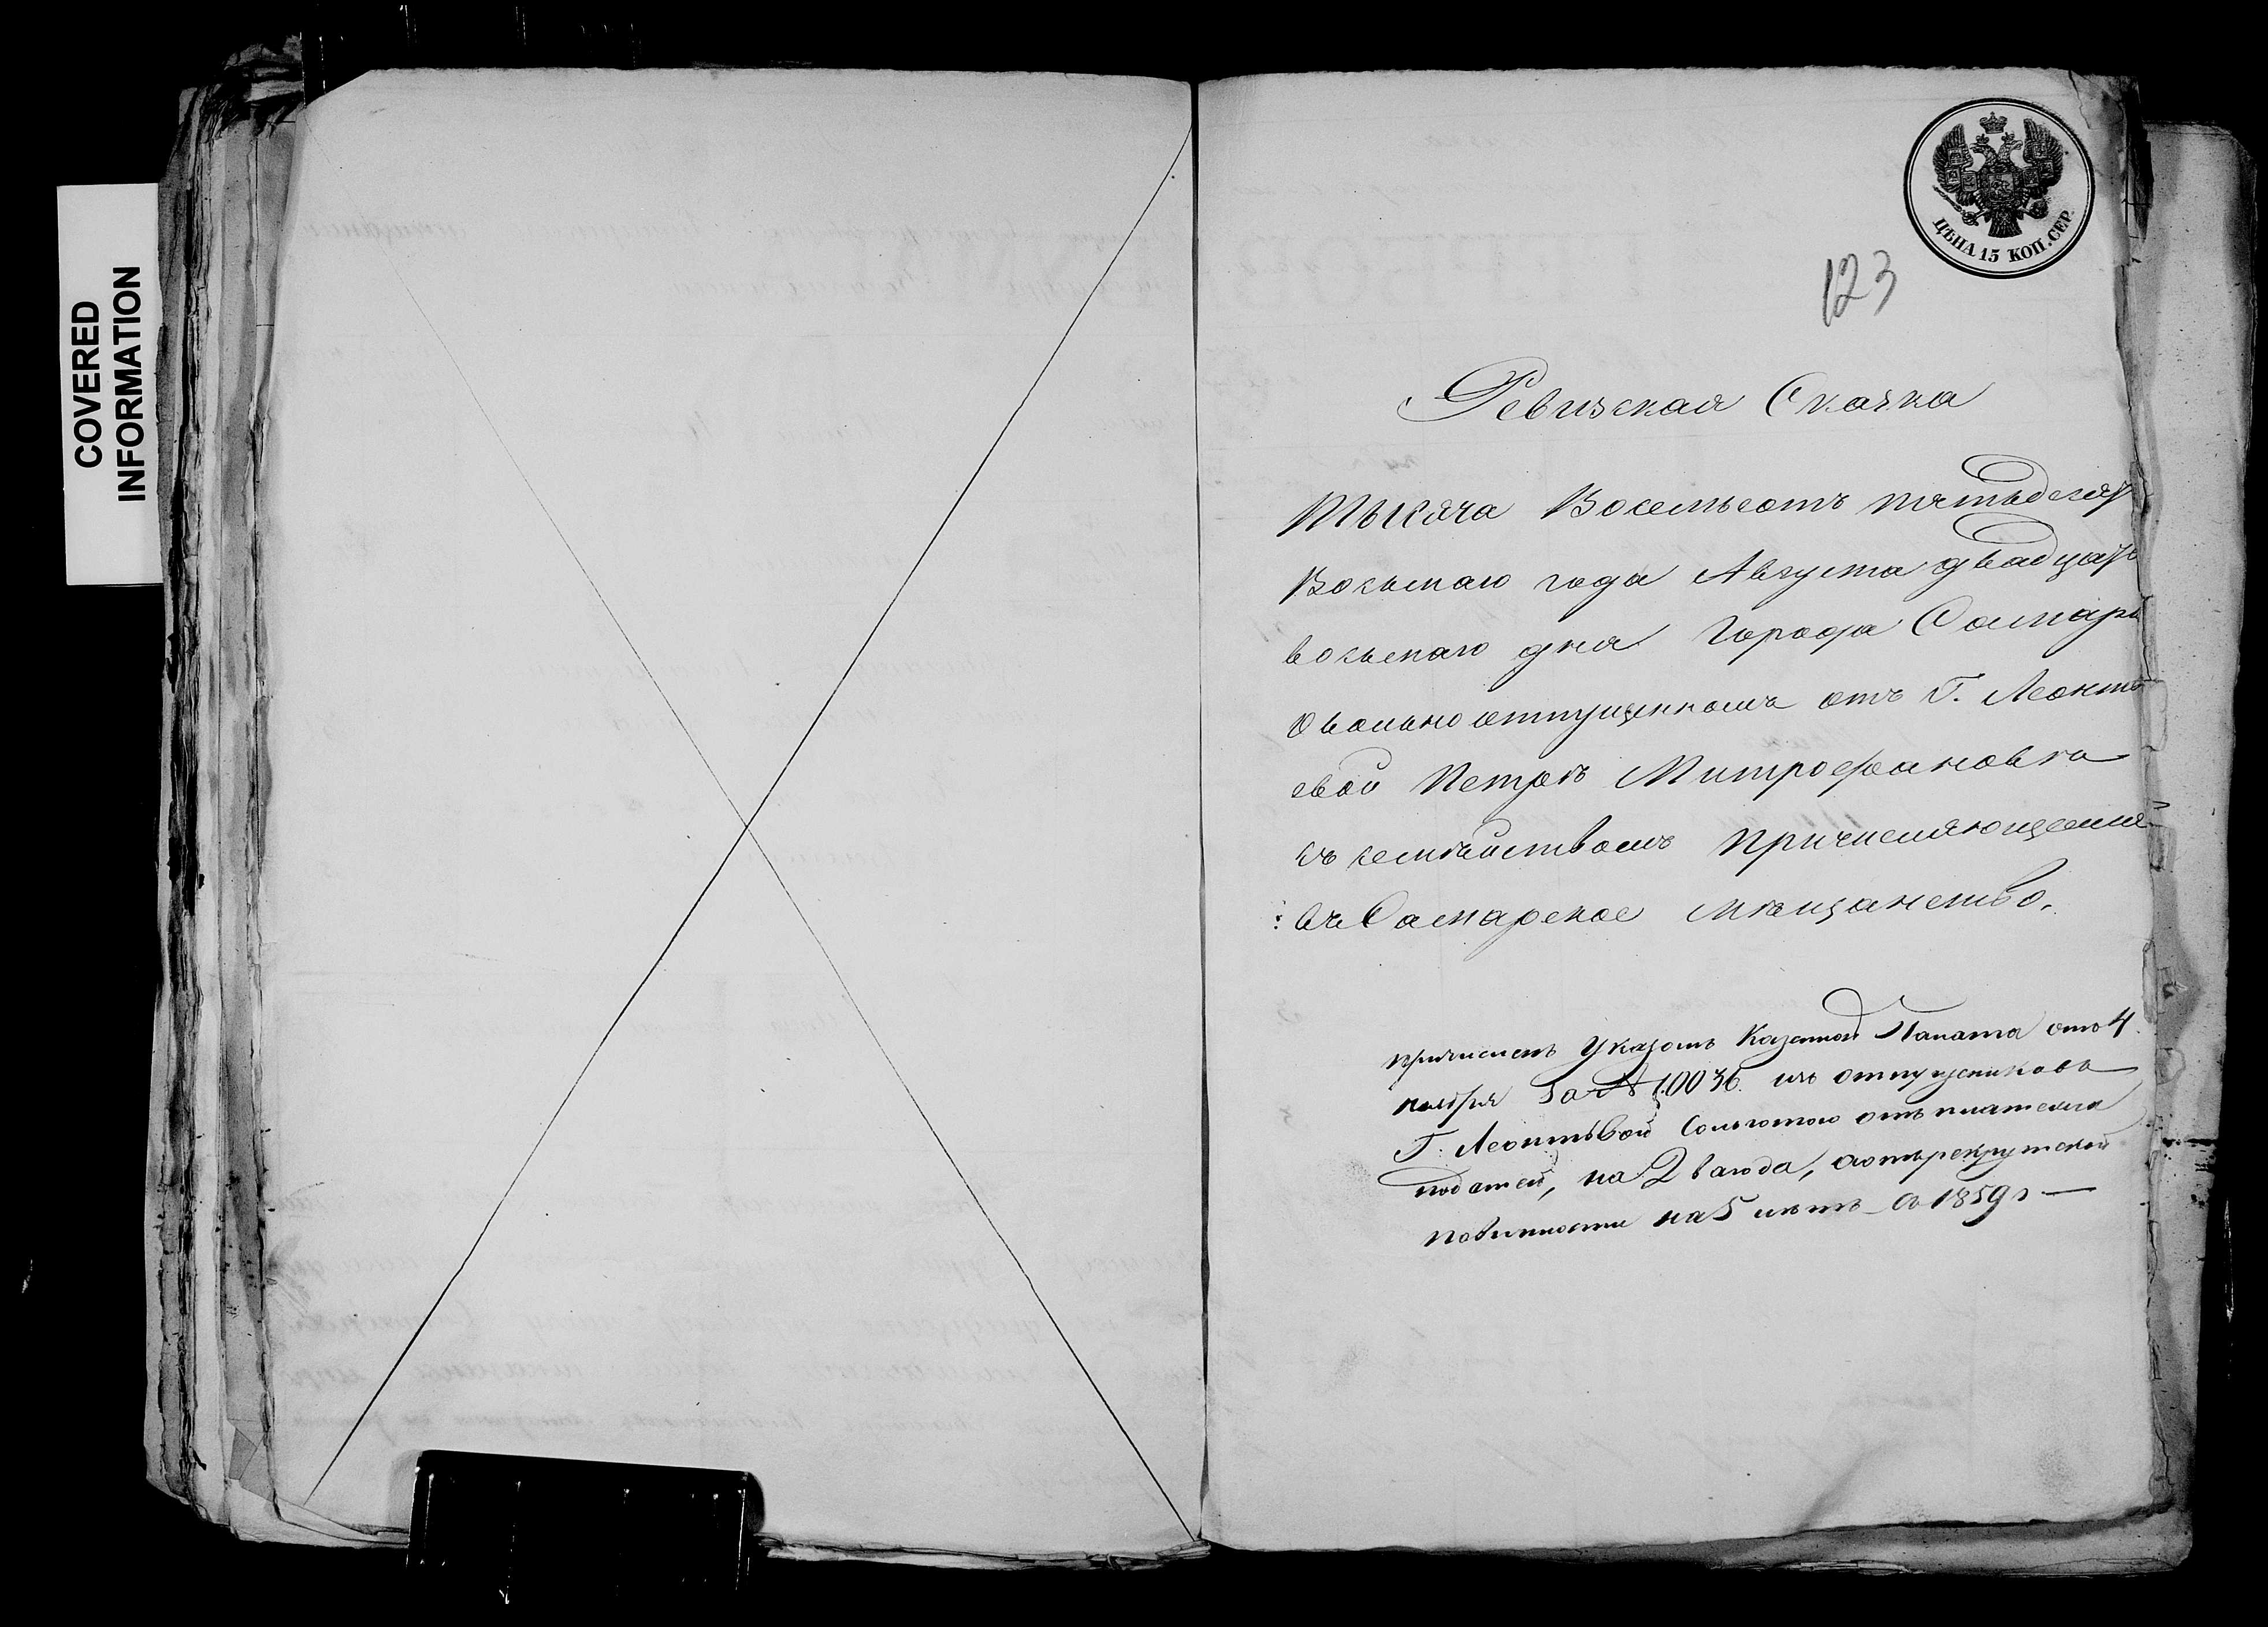 COVERED
INFORMATION
ЦѢНА 15 КОП. СЕР.
123
Ревизская Сказка
Тысяча Восемьсотъ пятьдесятъ
Восьмаго года Августа двадцать
восьмаго дня Города Самары
о вольноотпущенномъ отъ Г. Леонть
евой Петрѣ Митрофановѣ
съ семѣйствомъ причисляющемся
въ Самарское мѣщанство.
причисленъ указомъ Казенной Палаты отъ 4
ноября за № 10036. изъ отпущенниковъ
Г. Леонтьвой сольготою отъ платежа
податей, на 2 года, а отъ рекрутской
повинности на 5 лѣтъ съ 1859 г